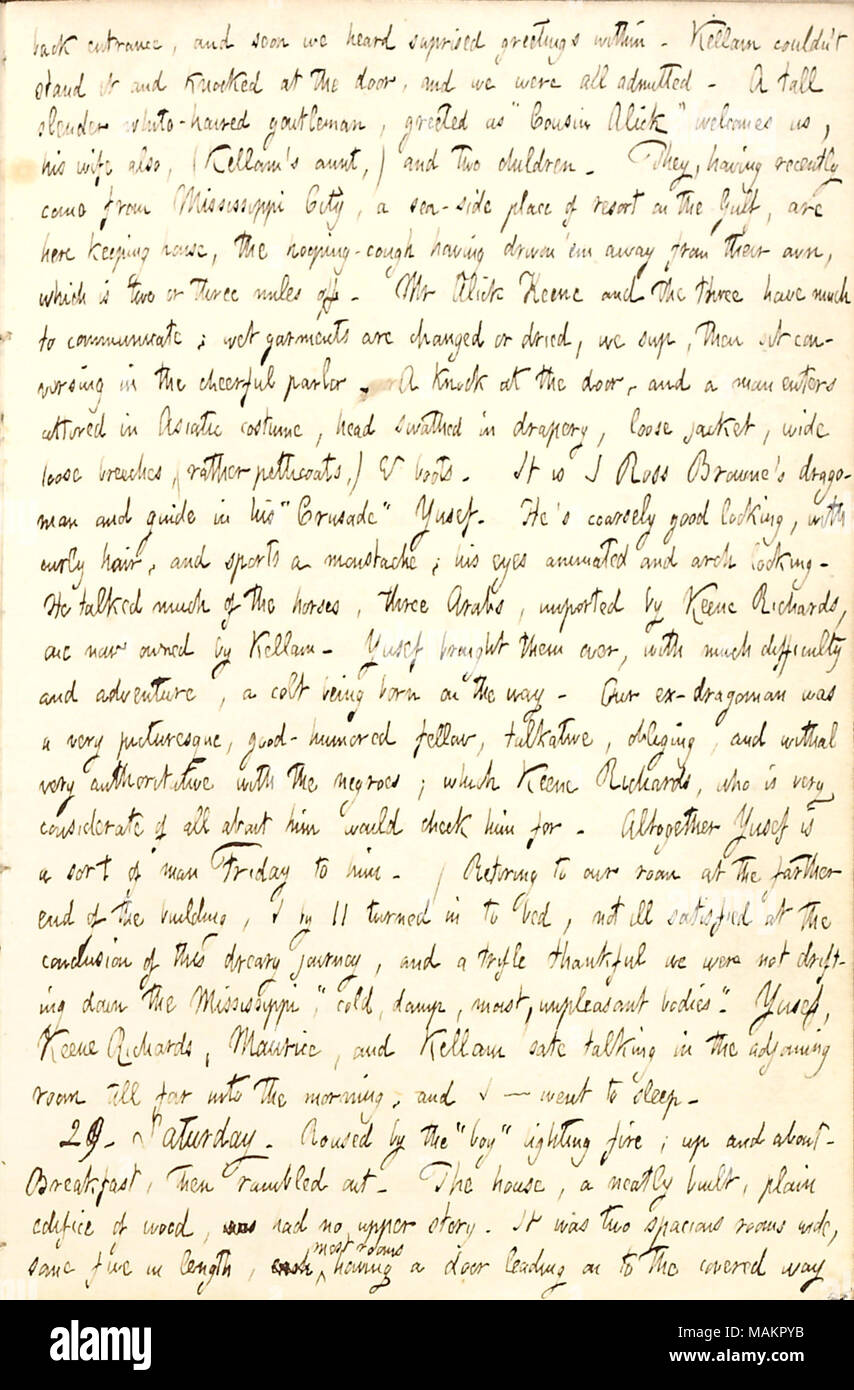 back entrance, and soon we heard suprised greetings within. Kellam couldn't
stand it and knocked at the door, and we were all admitted. A tall
slender white-haired gentleman, greeted as "Cousin Alick" welcomes us,
his wife also, (Kellam's aunt,) and two children. They, having recently
come from Mississippi City, a sea-side place of resort on the Gulf, are
here keeping house, the hooping-cough having driven 'em away from their own,
which is two or three miles off. Mr Alick Keene and the three have much
to communicate; wet garments are changed or dried, we sup, then sit con-
versing in the cheerful parlor. A knock at the door, and a man enters
attired in Asiatic costume, head swathed in drapery, loose jacket, wide
loose breeches, (rather petticoats,) & boots. It is J Ross Browne's drago-
man and guide in his "Crusade" Yusef. He's coarsely good looking, with
curly hair, and sports a moustache; his eyes animated and arch looking.
He talked much of the horses, three Arabs, imported by Keene Richards,
one now owned by Kellam. Yusef brought them over, with much difficulty
and adventure, a colt being born on the way. Our ex-dragoman was
a very picturesque, good-humored fellow, talkative, obliging, and withal
very authoritative with the negroes; which Keene Richards, who is very
considerate of all about him would check him for. Altogether Yusef is
a sort of man Friday to him. / Retiring to our room at the farther
end of the building, I by 11 turned in to bed, not ill satisfied at the
conclusion of this dreary journey, and a trifle thankful we were not drift-
ing down the Mississippi, "cold, damp, moist, unpleasant bodies." Yusef,
Keene Richards, Maurice, and Kellam sate talking in the adjoining
room till far into the morning, and I — went to sleep.
29. Saturday. Roused by the "boy" lighting fire; up and about.
Breakfast, then rambled out. The house, a neatly built, plain
edifice of wood, was had no upper story. It was two spacious rooms wide,
some five in length, each most rooms having a door leading on to the covered way
alamy
Image ID: MAKPYB
www.alamy.com